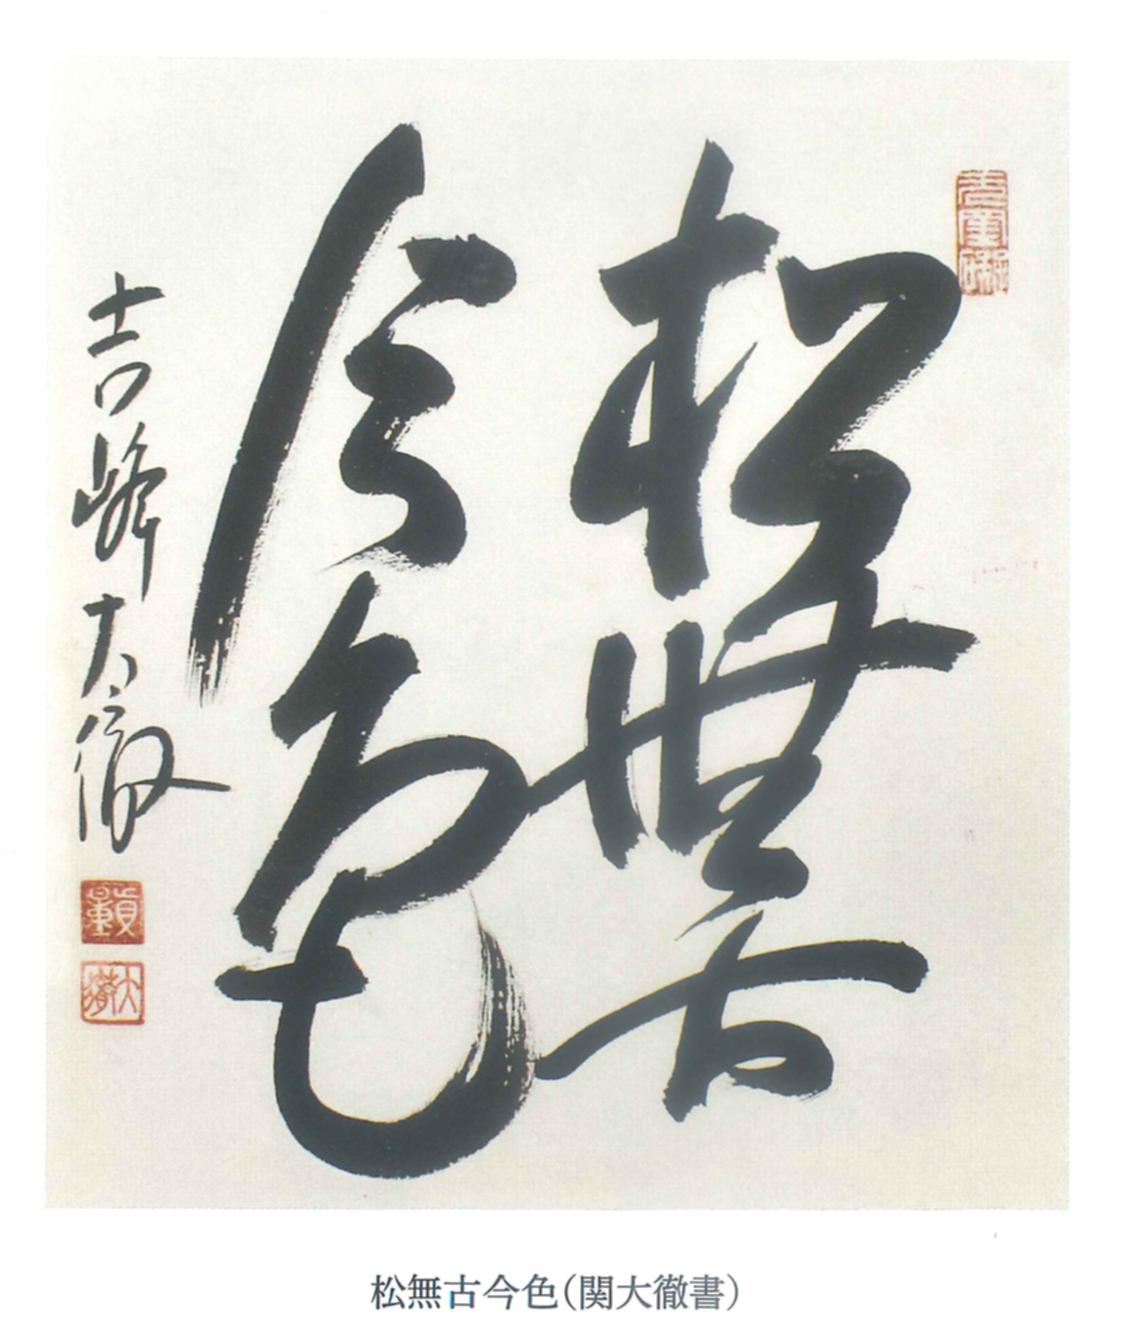 松無古
今色
吉峰大徹
松無古今色（関大徹書）